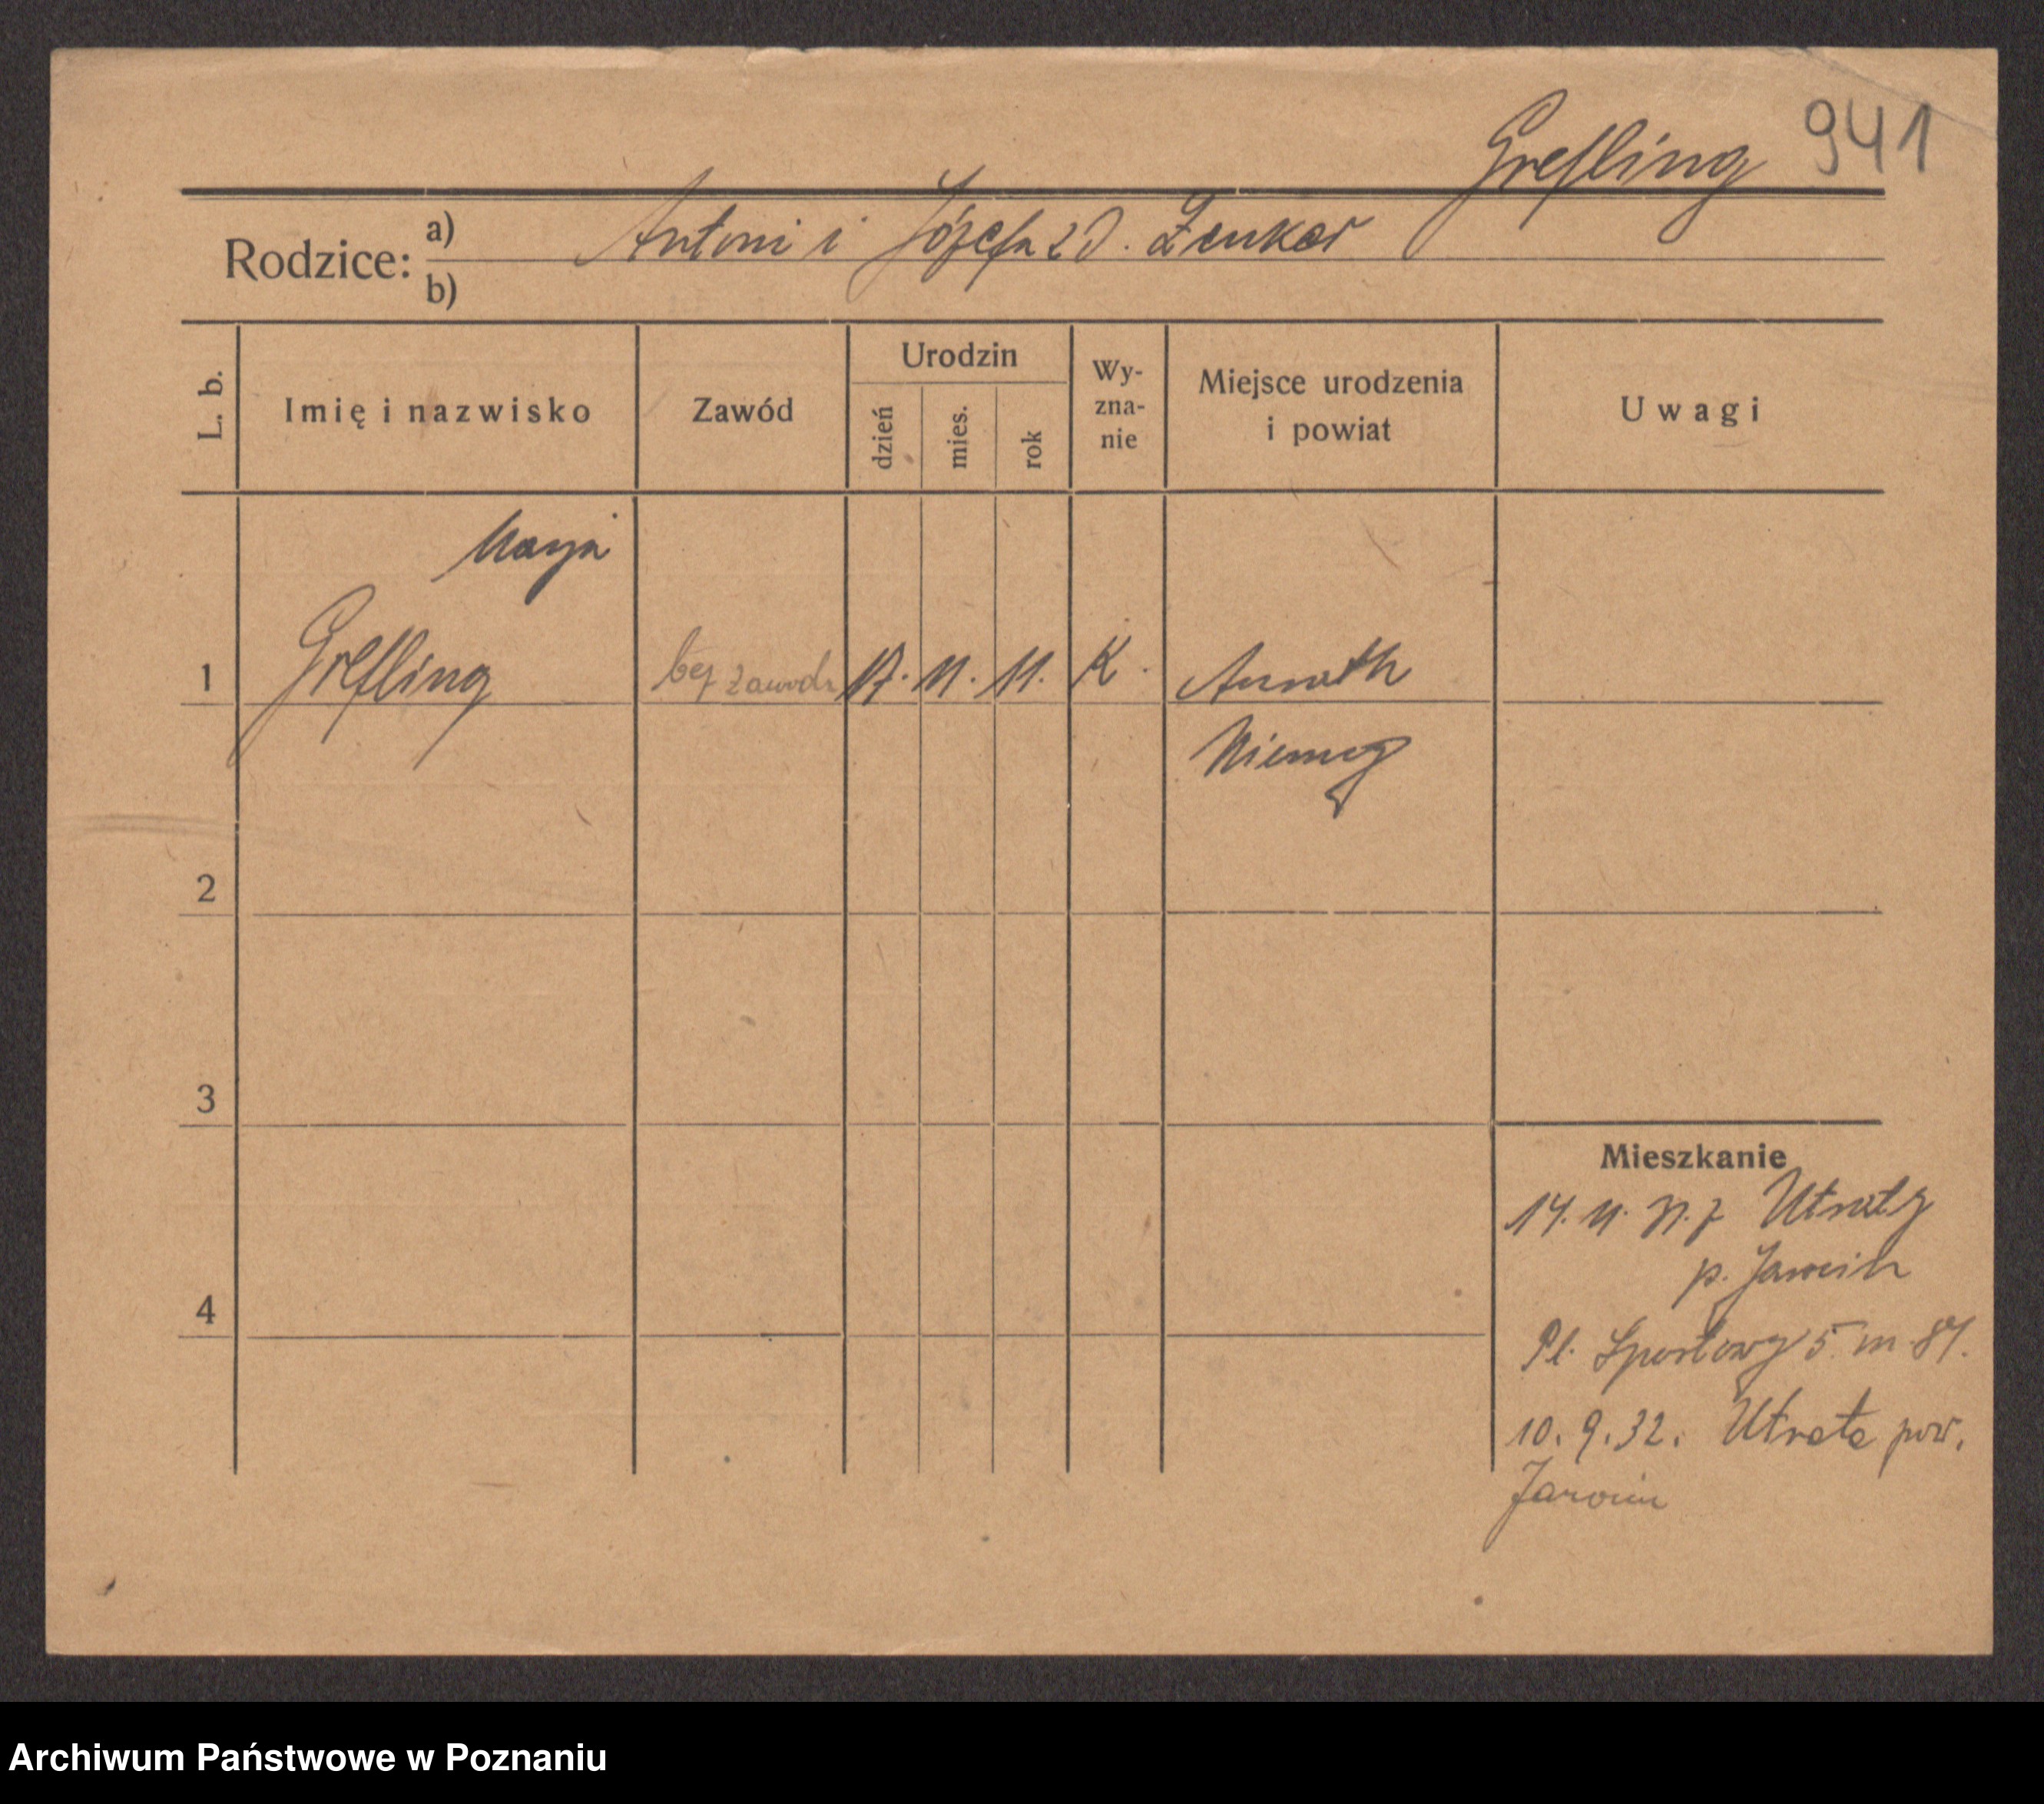 Grefling 941
Rodzice: a) Antoni i Józefa z d. Zenker
b)
L. b.
Imię i nazwisko
Zawód
Urodzin
dzień
mies.
rok
Wy-
zna-
nie
Miejsce urodzenia
i powiat
Uwagi
Marja
1 Grefling bez zawodu 17. 11. 11. K.
Niemcy
2
3
4
Mieszkanie
14. 11. 31. z Utraty
p. Jarocin
Pl. Sportowy 5. m.
10. 9. 32. Utrata pow.
Jarocin
Archiwum Państwowe w Poznaniu